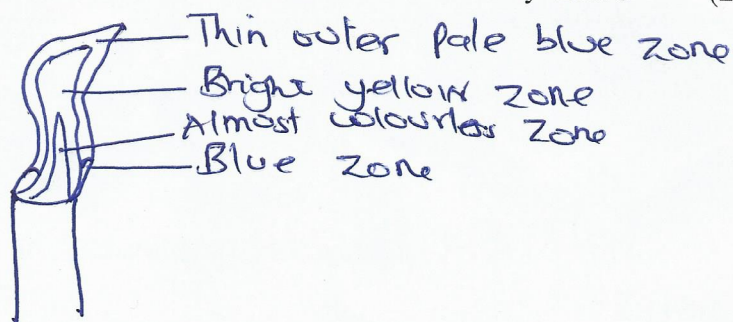 Thin outer pale blue zone
Bright yellow zone
Almost colourless zone
Blue zone